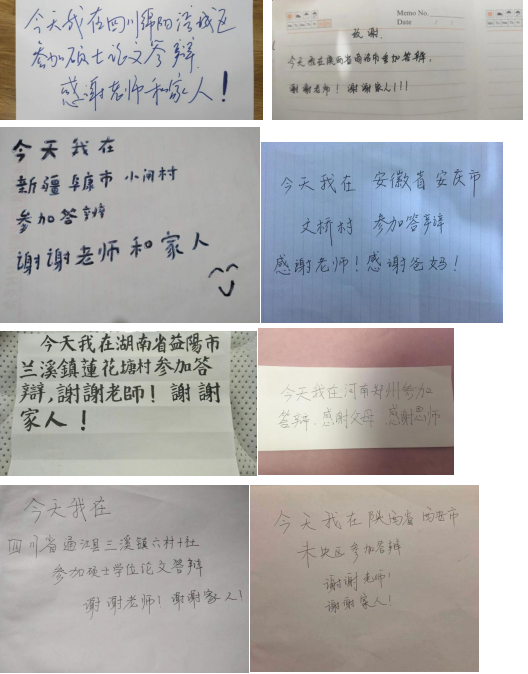 今天我在四川绵阳涪城区
参加硕士论文答辩
感谢老师和家人！
Memo No.
Date
致谢
今天我在陕西省渭南市参加答辩，
谢谢老师！谢谢家人！！！
今天我在
新疆阜康市小河村
参加答辩
谢谢老师和家人
今天我在 安徽省安庆市
文桥村 参加答辩
感谢老师！感谢爸妈！
今天我在湖南省益陽市
兰溪鎮蓮花塘村参加答
辯，謝謝老師！謝謝
家人！
今天我在河南郑州参加
答辩，感谢父母 感谢恩师
今天我在
四川省通江县三溪镇六村十社
参加硕士学位论文答辩
谢谢老师！谢谢家人！
今天我在陕西省西安市
未央区参加答辩
谢谢老师！
谢谢家人！